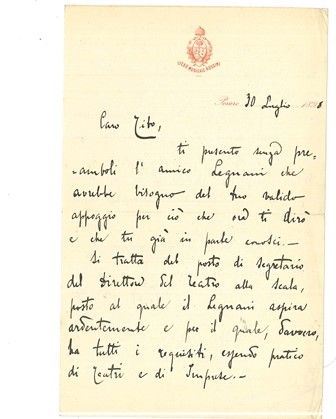 LICEO MUSICALE ROSSINI
Pesaro 30 Luglio 1898
Caro Tito,
ti presento senza pre-
-amboli l'amico Legnani che
avrebbe bisogno del tuo valido
appoggio per ciò che ora ti dirò
e che tu già in parte conosci.—
Si tratta del posto di segretario
del Direttore del Teatro alla Scala,
posto al quale il Legnani aspira
ardentemente e per il quale, davvero,
ha tutti i requisiti, essendo pratico
di Teatri e di Imprese.—